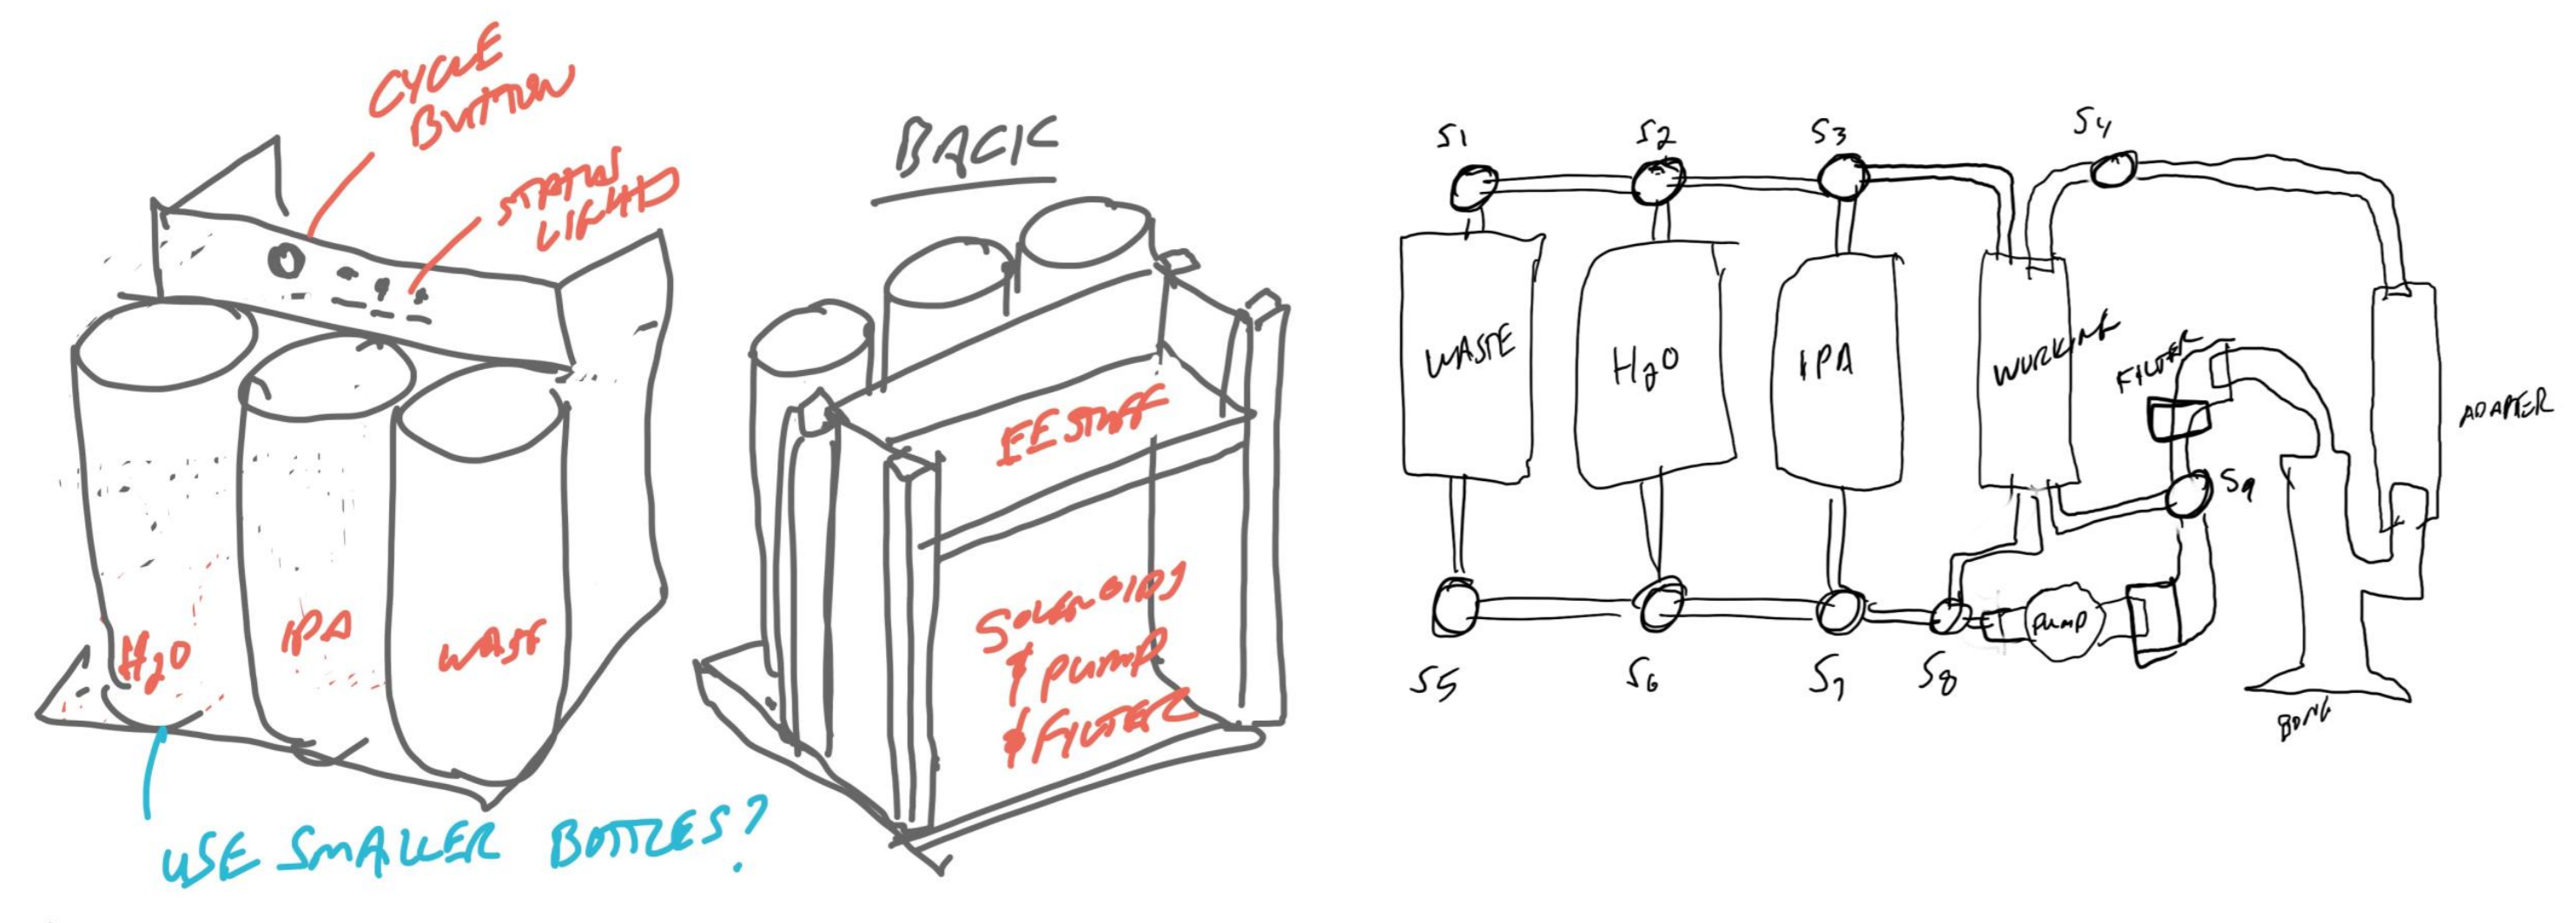 CYCLE
BUTTON
STATUS
LIGHT
H2O
IPA
WASTE
USE SMALLER BOTTLES?
BACK
EE STUFF
SOLENOIDS
& PUMP
& FILTER
S1
S2
S3
S4
WASTE
H2O
IPA
WORKING
FILTER
ADAPTER
S9
PUMP
S5
S6
S7
S8
BONG